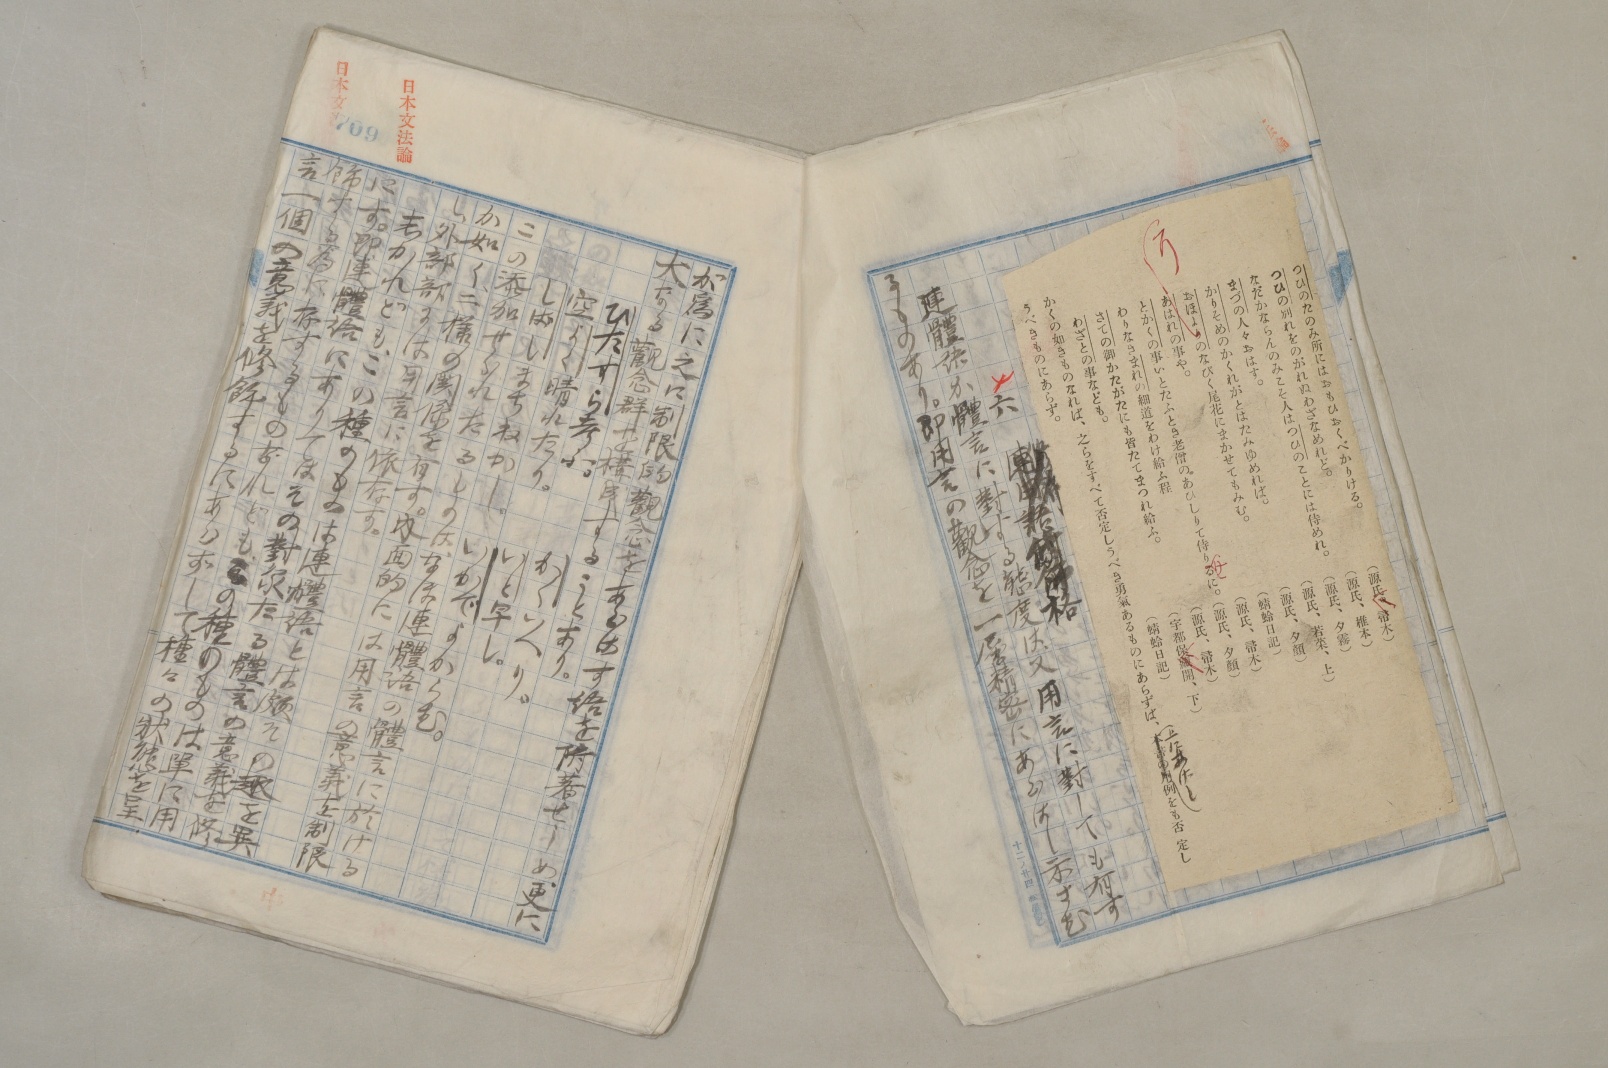 つひのたのみ所にはおもひおくべかりける。
(源氏、帚木)
つひの別れをのがれぬわざなめれど。
(源氏、椎本)
なだかならんのみこそ人はつひのことには侍めれ。
(源氏、夕霧)
まづの人々おはす。
(源氏、若菜、上)
かりそめのかくれがとはたみゆめれば。
(源氏、夕顔)
のなびく尾花にまかせてもみむ。
(蜻蛉日記)
あはれの事や。
(源氏、帚木)
とかくの事いとたふとき老僧の。あひしりて侍るに。
(源氏、夕顔)
わりなきまれの細道をわけ給ふ程
(源氏、帚木)
さての御かたがたにも皆たてまつれ給ふ。
(宇都保、藏開、下)
わざとの事なども。
(蜻蛉日記)
かくの如きものなれば、之らをすべて否定しうべき勇氣あるものにあらずは、の用例をも否定し
うべきものにあらず。
六
格
連體語が體言に對する態度は又用言に對しても有す
るものあり。即用言の觀念を一層精密にあらはし示さむ
が爲に之に制限的觀念をあらはす語を附著せしめ更に
大なる觀念群を構成することあり。
ひたすら考ふ。
かくいへり。
空よく晴れたり。
いと早し。
しばしまちねかし。
いかでよからむ。
この添加せられたるものは、なほ連體語の體言に於ける
が如く、二樣の關係を有す。内面的には用言の意義を制限
し、外部的には用言に依存す。
しかれども、この種のものは連體語とは頗その趣を異
にす。即連體語にありてはその對象たる體言の意義を修
飾する爲に存するものなれども、この種のものは單に用
言一個の意義を修飾するにあらずして種々の狀態を呈
日本文法論
日本文
769
中